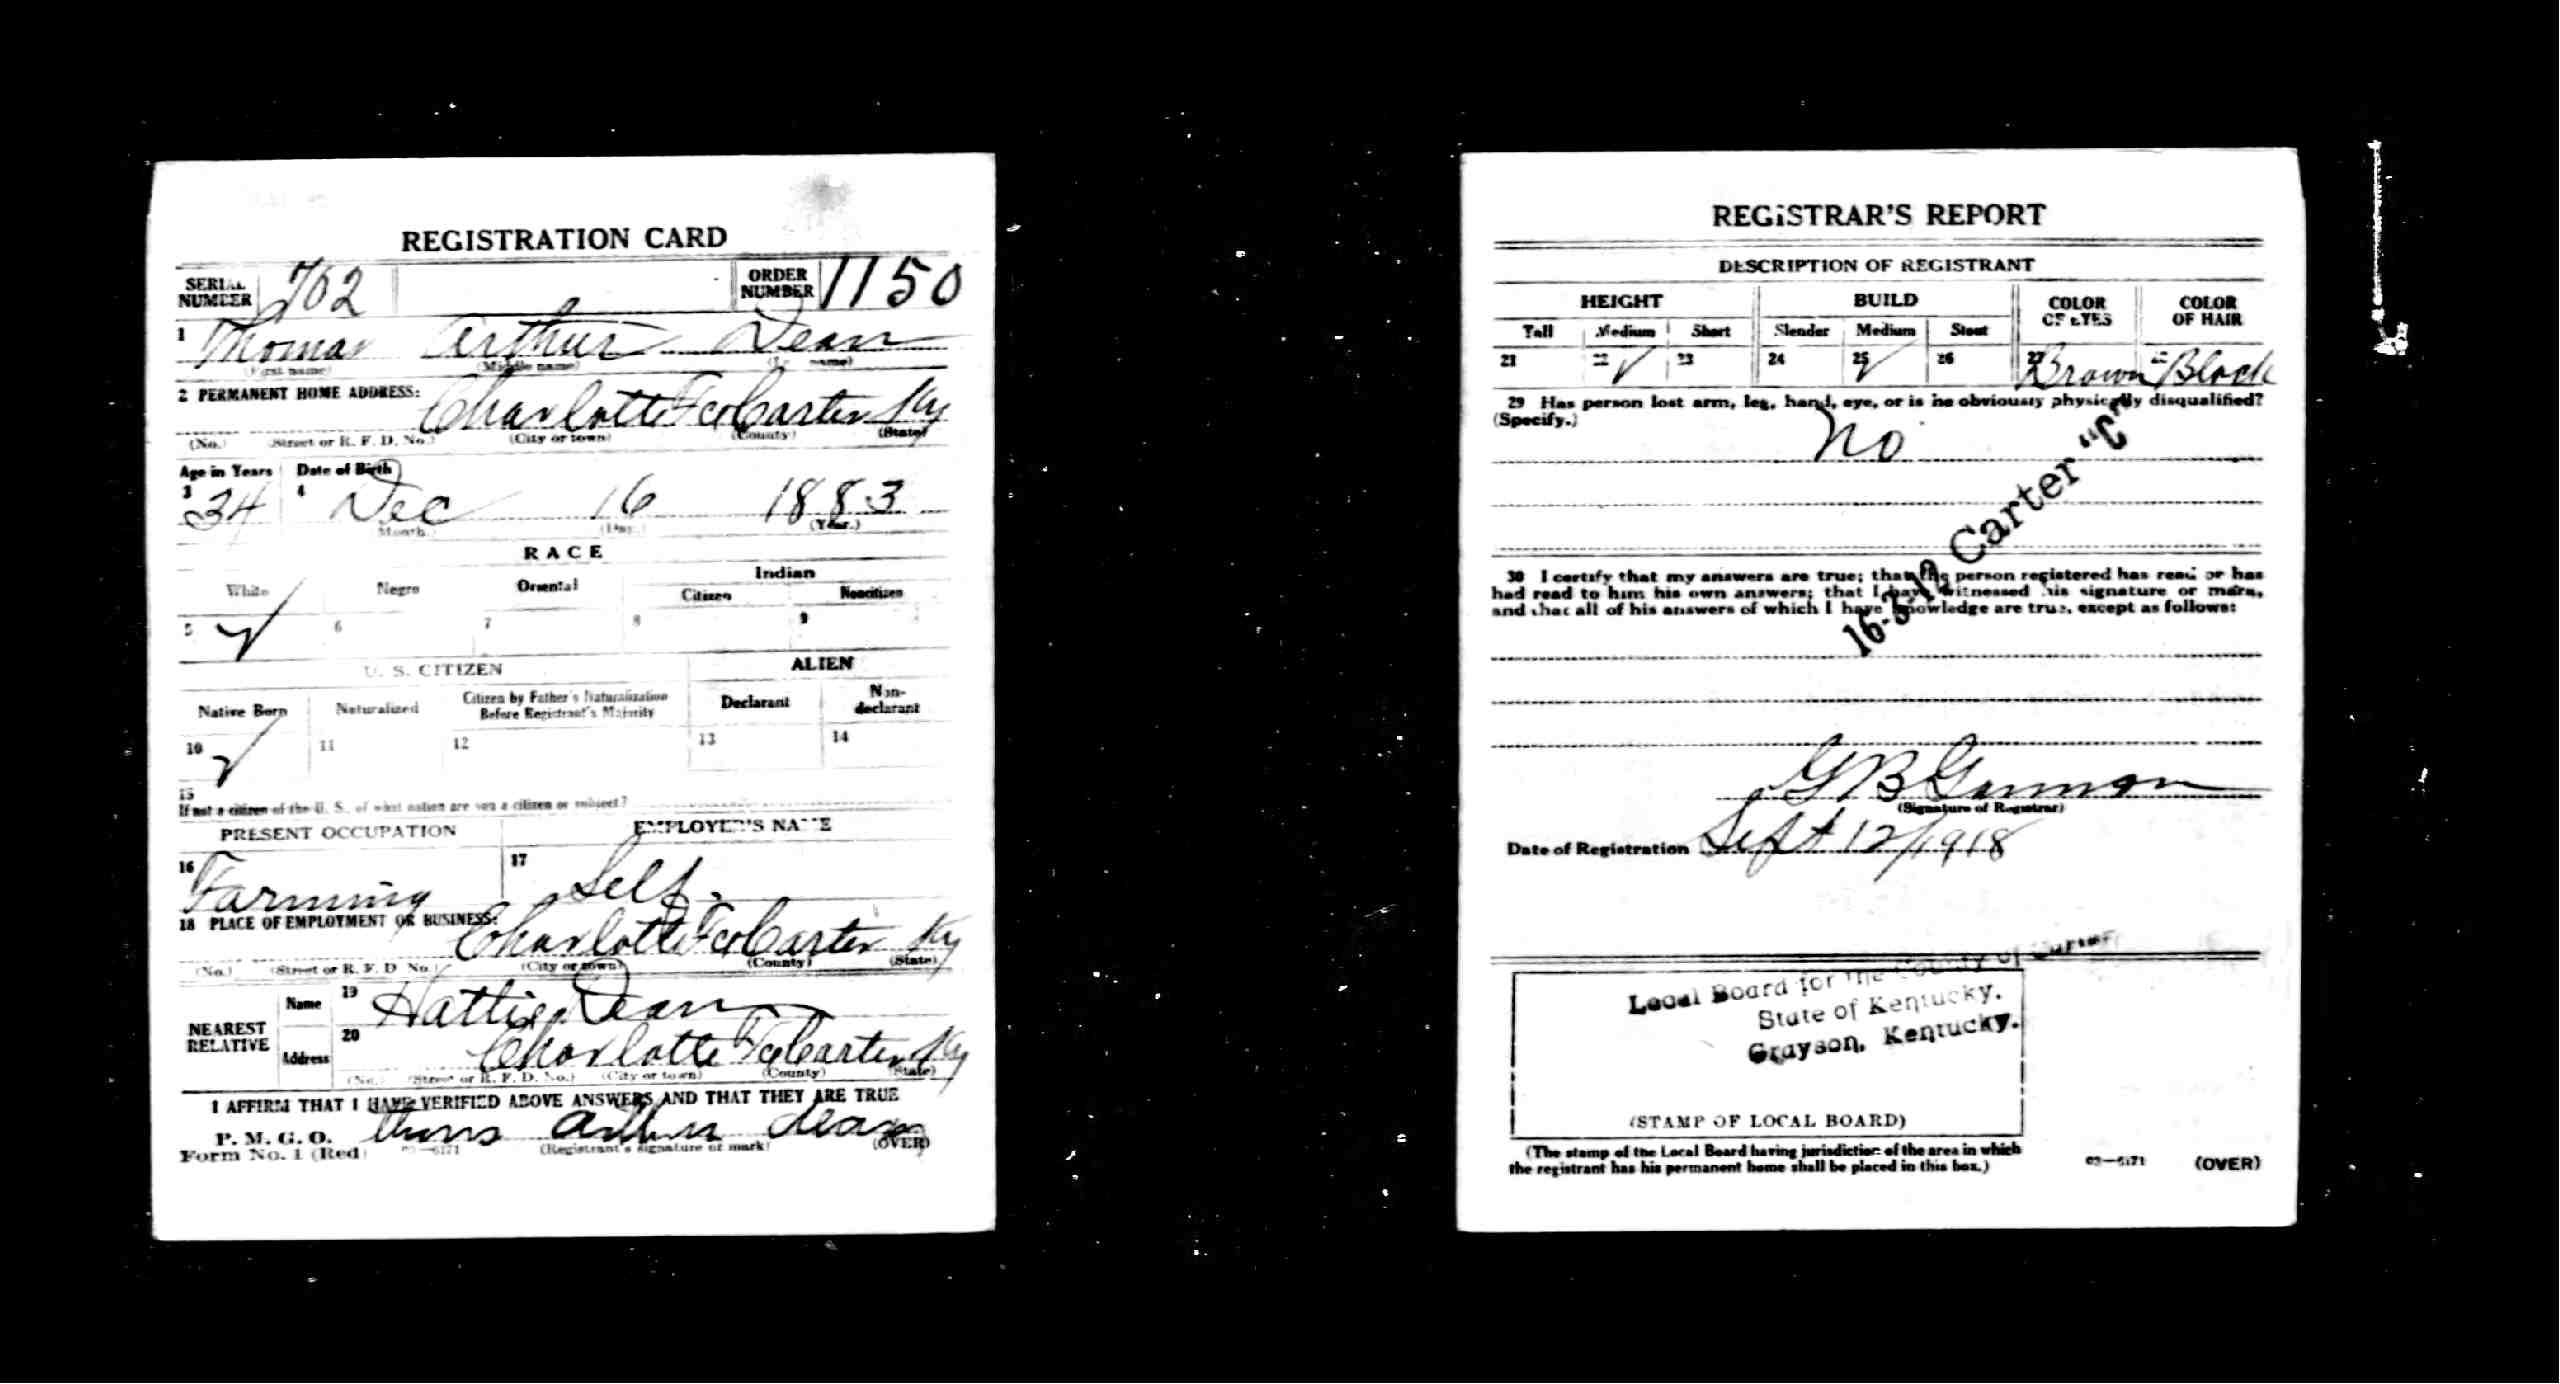 REGISTRATION CARD
SERIAL NUMBER 702 ORDER NUMBER 1150
1 Thomas Arthur Dean
(First name) (Middle name) (Last name)
2 PERMANENT HOME ADDRESS:
Charlotte Fce Carter Ky
(No.) (Street or R. F. D. No.) (City or town) (County) (State)
Age in Years Date of Birth
3 34 4 Dec 16 1883
(Month.) (Day.) (Year.)
RACE
White Negro Oriental Indian
Citizen Noncitizen
5 ✓ 6 7 8 9
U. S. CITIZEN ALIEN
Native Born Naturalized Citizen by Father's Naturalization Before Registrant's Majority Declarant Non-declarant
10 ✓ 11 12 13 14
15
If not a citizen of the U. S., of what nation are you a citizen or subject?
PRESENT OCCUPATION EMPLOYER'S NAME
16 Farming 17 Self.
18 PLACE OF EMPLOYMENT OR BUSINESS:
Charlotte Fce Carter Ky
(No.) (Street or R. F. D. No.) (City or town) (County) (State)
NEAREST RELATIVE Name 19 Hattie Dean
Address 20 Charlotte Fce Carter Ky
(No.) (Street or R. F. D. No.) (City or town) (County) (State)
I AFFIRM THAT I HAVE VERIFIED ABOVE ANSWERS AND THAT THEY ARE TRUE
P. M. G. O.
Form No. 1 (Red) 03—6171 (Registrant's signature or mark) (OVER)
Arthur dean
REGISTRAR'S REPORT
DESCRIPTION OF REGISTRANT
HEIGHT BUILD COLOR OF EYES COLOR OF HAIR
Tall Medium Short Slender Medium Stout
21 22 ✓ 23 24 25 ✓ 26 27 Brown 28 Black
29 Has person lost arm, leg, hand, eye, or is he obviously physically disqualified?
(Specify.)
No
16-3-12 Carter "C"
30 I certify that my answers are true; that the person registered has read or has
had read to him his own answers; that I have witnessed his signature or mark,
and that all of his answers of which I have knowledge are true, except as follows:
G B Garmon
(Signature of Registrar)
Date of Registration Sept 12/1918
Local Board for the County of Carter
State of Kentucky.
Grayson, Kentucky.
(STAMP OF LOCAL BOARD)
(The stamp of the Local Board having jurisdiction of the area in which
the registrant has his permanent home shall be placed in this box.)
03—6171 (OVER)